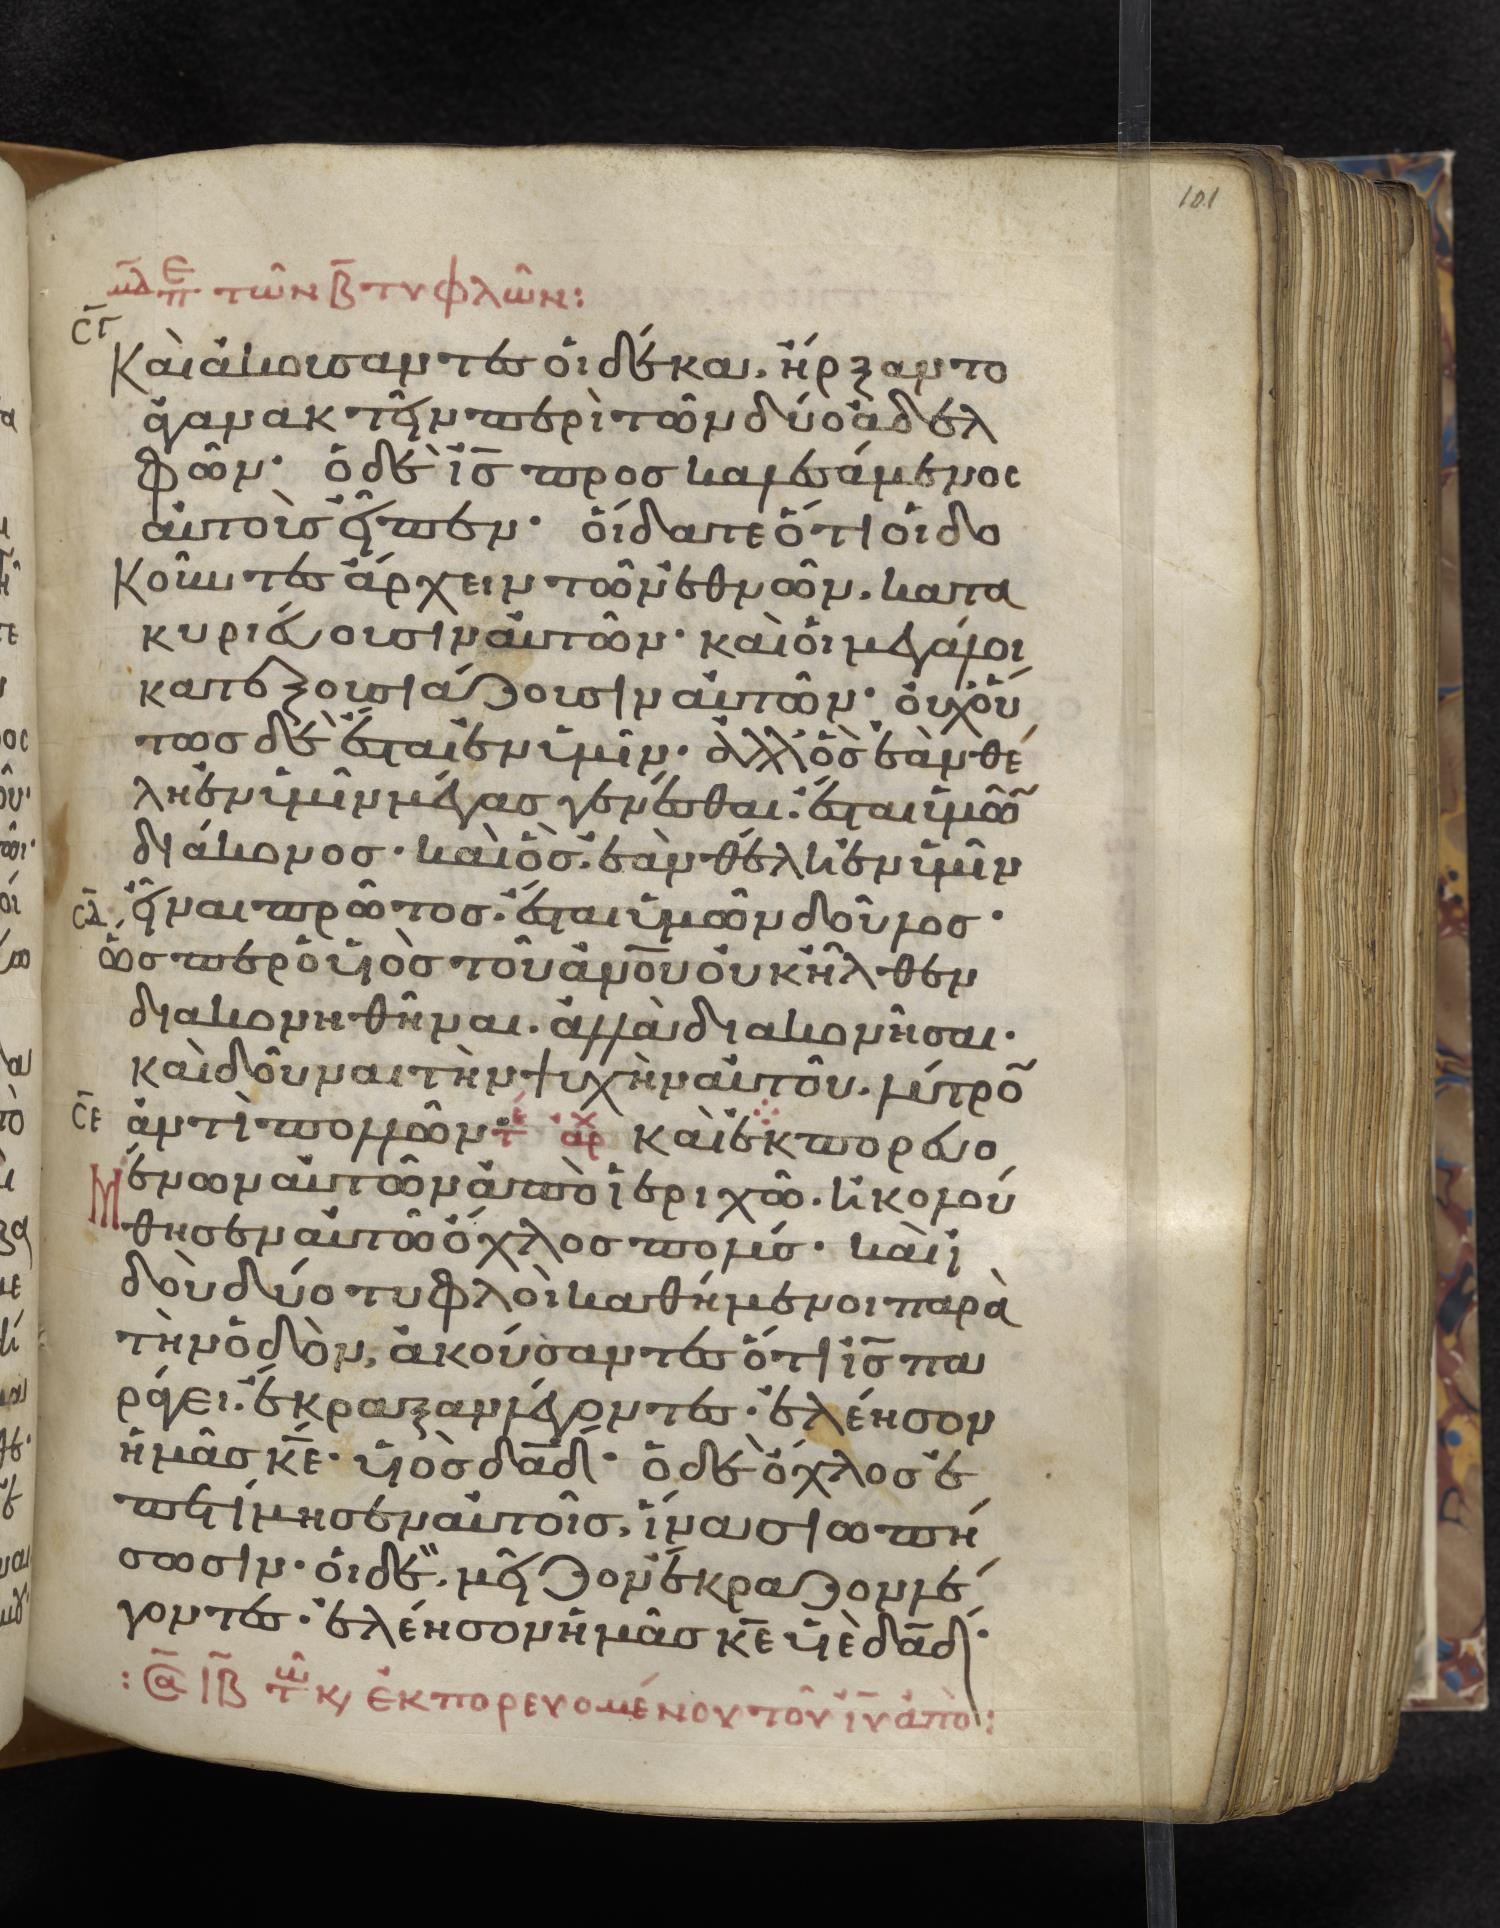 101
μδ περὶ τῶν β τυφλῶν:
σγ
Καὶ ἀκούσαντες οἱ δέκα. ἤρξαντο
ἀγανακτεῖν περὶ τῶν δύο ἀδελ
φῶν· ὁ δὲ ις προσκαλεσάμενος
αὐτοὺς εἶπεν· οἴδατε ὅτι οἱ δο
κοῦντες ἄρχειν τῶν ἐθνῶν. κατα
κυριεύουσιν αὐτῶν· καὶ οἱ μεγάλοι
κατεξουσιάζουσιν αὐτῶν· οὐχ οὕ
τως δὲ ἔσται ἐν ὑμῖν· ἀλλ' ὃς ἐὰν θέ
λη ἐν ὑμῖν μέγας γενέσθαι. ἔσται ὑμῶν
διάκονος· καὶ ὃς ἐὰν θέλη ἐν ὑμῖν
σδ εἶναι πρῶτος. ἔσται ὑμῶν δοῦλος·
ὥσπερ ὁ υἱὸς τοῦ ανου οὐκ ἦλθεν
διακονηθῆναι. ἀλλὰ διακονῆσαι·
καὶ δοῦναι τὴν ψυχὴν αὐτοῦ. λύτρον
σε ἀντὶ πολλῶν· τε αρχ καὶ ἐκπορευο
μένων αὐτῶν ἀπὸ ἱεριχῶ. ἠκολού
θησεν αὐτῶ ὄχλος πολύς· καὶ ἰ
δοὺ δύο τυφλοὶ καθήμενοι παρὰ
τὴν ὁδὸν, ἀκούσαντες ὅτι ις πα
ράγει. ἔκραξαν λέγοντες· ἐλέησον
ἡμᾶς κε· υἱὸς δαδ· ὁ δὲ ὄχλος ἐ
πετίμησεν αὐτοῖς, ἵνα σιωπή
σωσιν· οἱ δὲ. μεῖζον ἔκραζον λέ
γοντες· ἐλέησον ἡμᾶς κε υἱὲ δαδ·
ἐκπορευομένου τοῦ ιυ ἀπὸ: